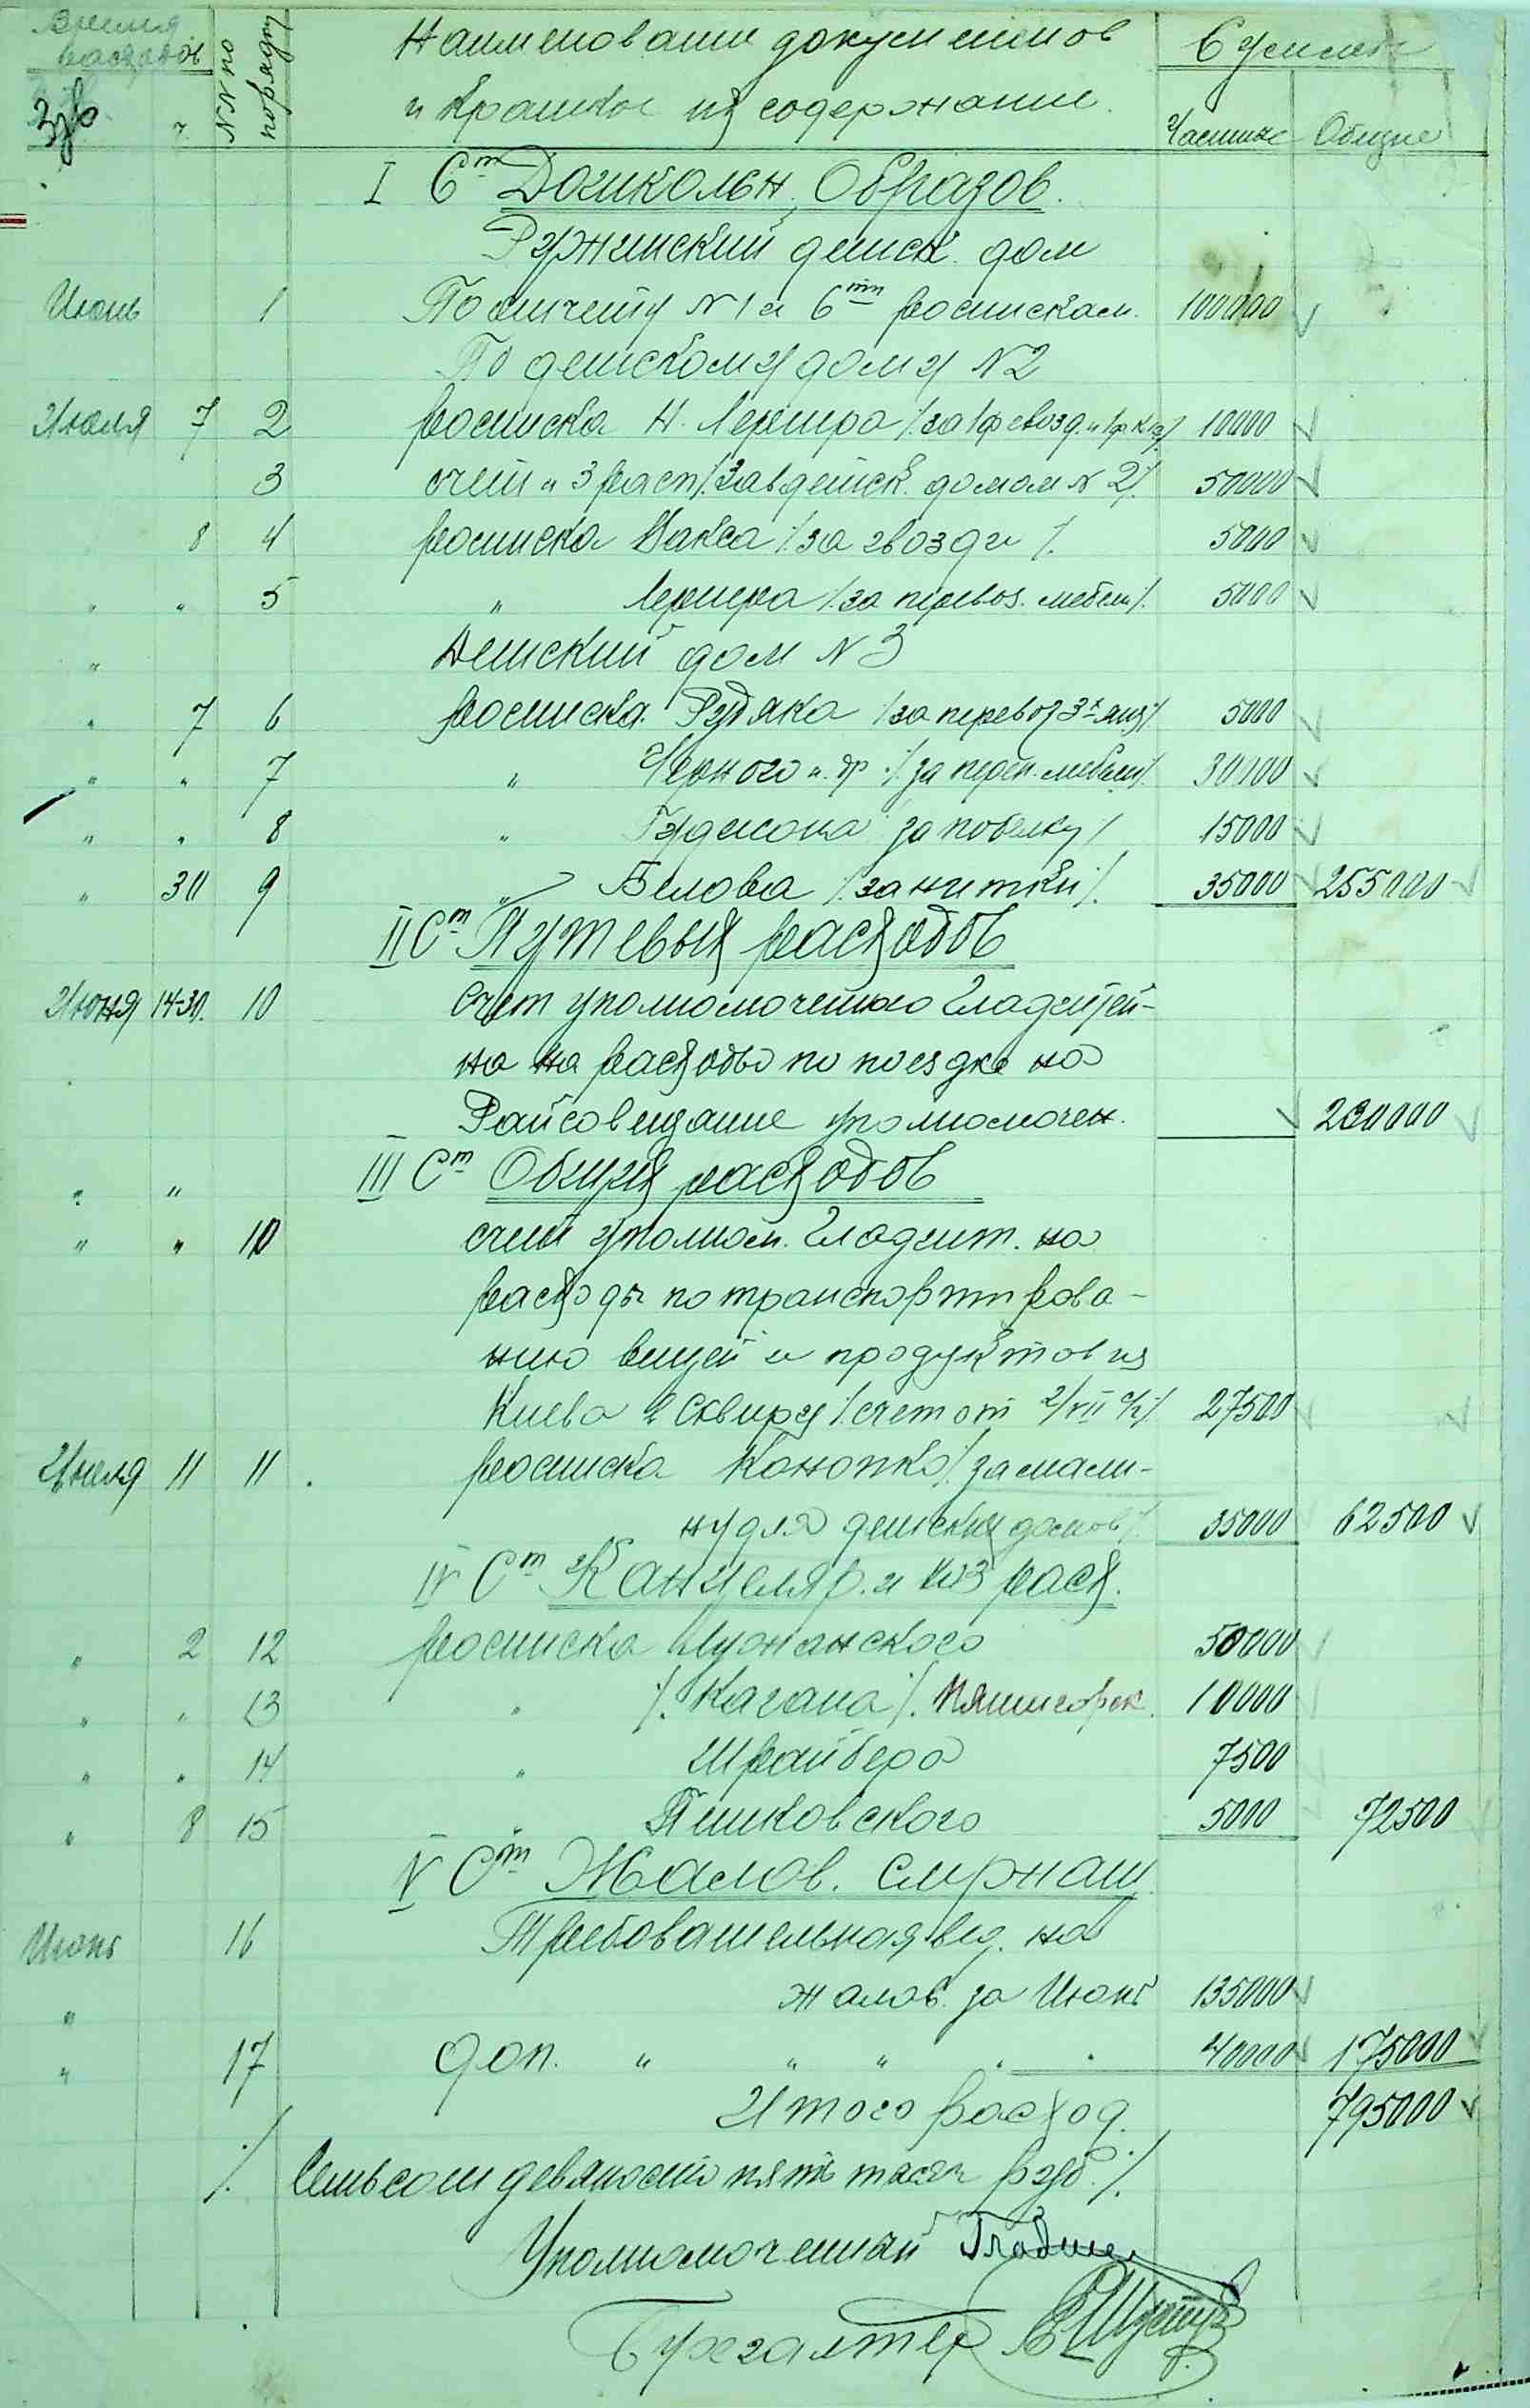 Время
расходов
NN по порядку
Наименование документов
и краткое их содержание.
Сумма
Частные Общие
I Ст Дошкольн. Образов.
Ружинский детск. дом
Июнь 1 По отчету N 1 и 6тп роспискам. 100000
По детскому дому N2
Июля 7 2 росписка Н. Лернера 10000
3 счет и 3 расп /. Зав детск. домом N 2 /. 50000
8 4 росписка Вакса /. за гвозди /. 5000
" " 5 " Лернера /. за перевоз. мебели /. 5000
" Детский дом N 3
" 7 6 росписка Рудяка /. за перевоз 3х ящ /. 5000
" " 7 " Черного и др /. за перев. мебели /. 30000
" " 8 " за побелку / 15000
" 30 9 " Белова /. за нитки /. 35000 255000
II Ст Путевых расходов
Июня 14-30. 10 Счет уполномоченного Гладштей-
на на расходы по поездке на
Райсовещание уполномочен. 230000
" " III Ст Общих расходов
" " 10 счет уполном. Гладшт. на
расходы по транспортирова-
нию вещей и продуктов из
Киева в Сквиру /. счет от 2/VII с/г /. 27500
Июля 11 11 росписка Конопко /. за мали-
ну для детских домов /. 35000 62500
IV Ст Канцеляр. и хоз расх.
" 2 12 росписка Лужанского 50000
" " 13 " /. Кагана /. Пятигорск. 10000
" " 14 " Шрайбера 7500
" 8 15 " Петковского 5000 72500
V Ст Жалов. служащ.
Июнь 16 Требовательная вед. на
" жалов. за Июнь 135000
" 17 доп. " " " " " 40000 175000
Итого расход. 795000
/. Семьсот девяносто пять тысяч руб. /.
Уполномоченный
Бухгалтер